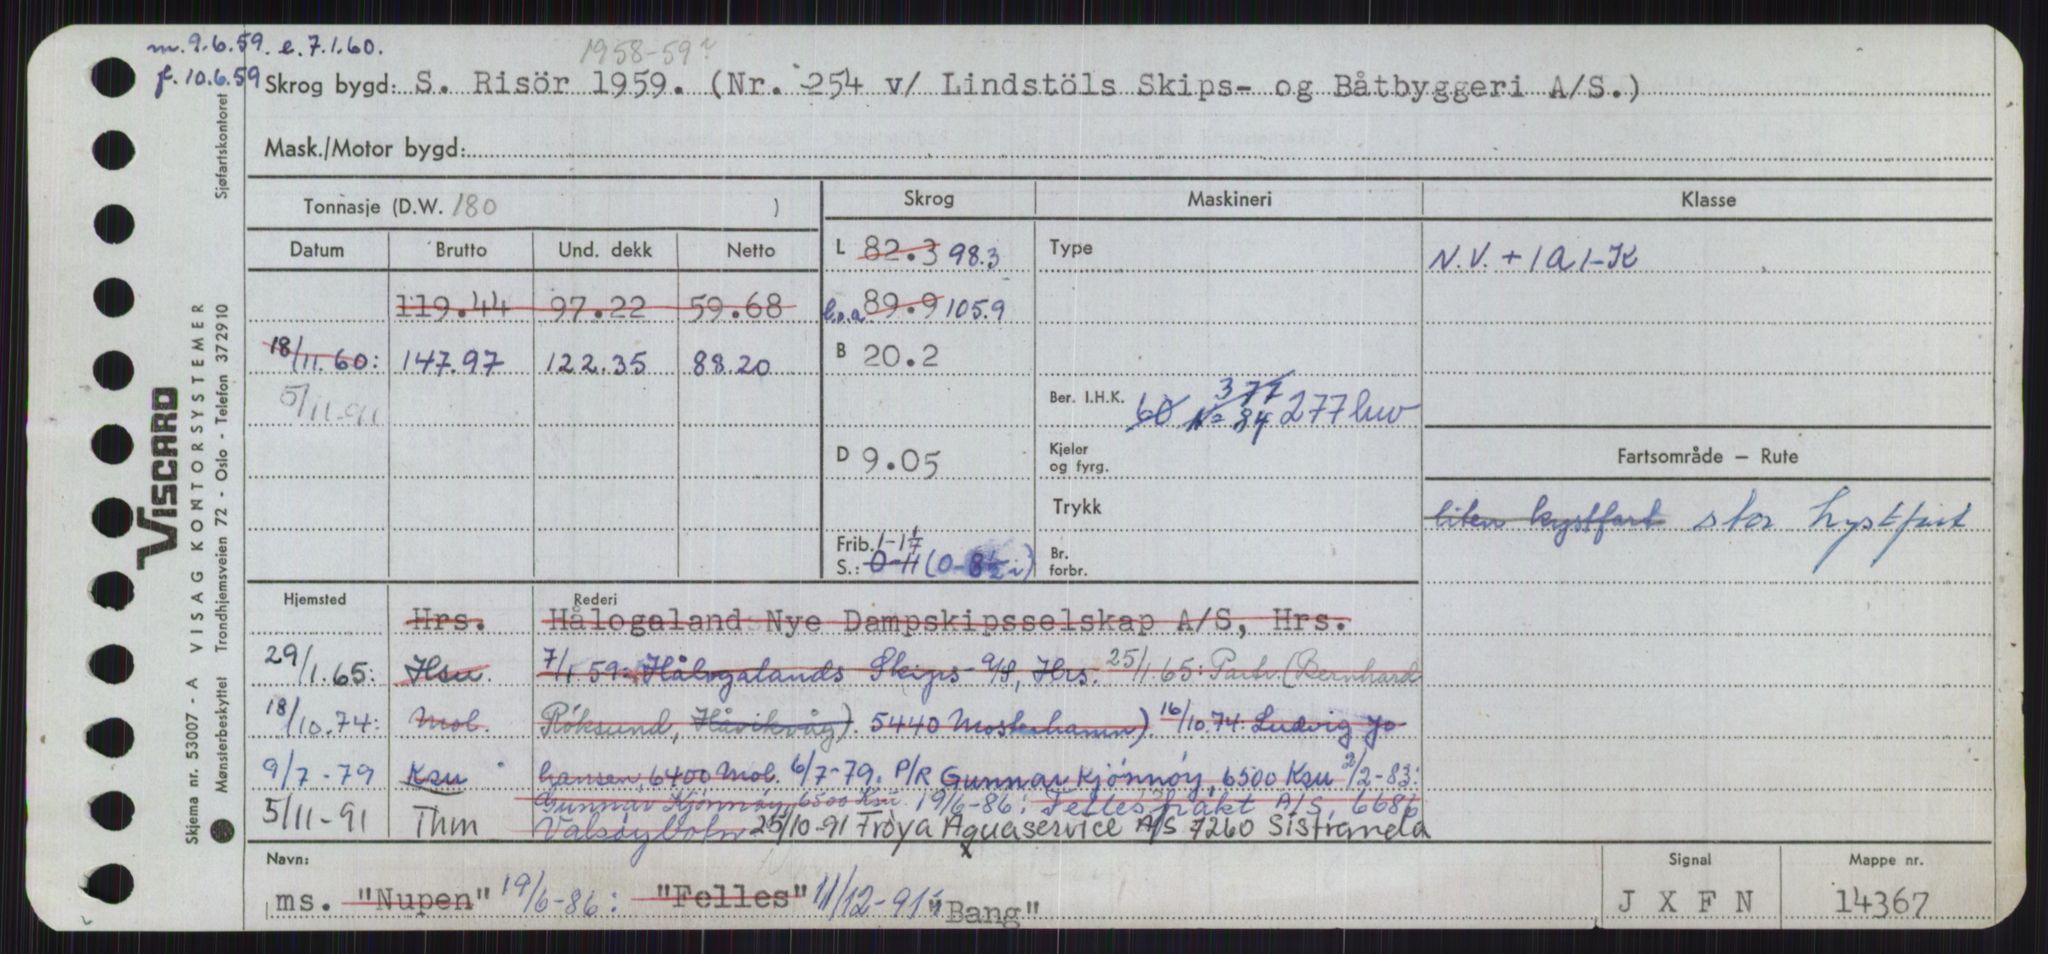 m. 9.6.59. e. 7.1.60.
1958-59
f. 10.6.59 Skrog bygd: S. Risör 1959. (Nr. 254 v/ Lindstöls Skips- og Båtbyggeri A/S.)
Mask./Motor bygd:
Tonnasje (D.W. 180 ) Skrog Maskineri Klasse
Datum Brutto Und. dekk Netto L 82.3 98.3 Type N.V. + 1A1-K
119.44 97.22 59.68 l.o.a 89.9 105.9
18/11.60: 147.97 122.35 88.20 B 20.2
5/11-91 Ber. I.H.K. 60 377 N= 84 277 hw
D 9.05 Kjeler og fyrg. Fartsområde – Rute
Trykk liten kystfart stor kystfart
Frib. 1-1 1/7
S.: 0-11 (0-8½ i) Br. forbr.
Hjemsted Rederi
Hrs. Hålogaland Nye Dampskipsselskap A/S, Hrs.
29/1.65: Hsu. 7/1 59: Hålogalands Skips- A/S, Hrs. 25/1.65: Partr. (Bernhard
18/10.74: Mol. Röksund, Håvikvåg). 5440 Mosterhamn). 16/10.74: Ludvig Jo
9/7-79 Ksu hansen, 6400 Mol. 6/7-79. P/R Gunnar Kjönnöy, 6500 Ksu 2/2-83:
Gunnar Kjönnöy 6500 Ksu. 19/6-86: Fellesfrakt A/S, 6686
5/11-91 Thm Valsöybotn 25/10-91 Fröya Aquaservice A/S 7260 Sistranda
Navn: Signal Mappe nr.
ms. "Nupen" 19/6-86: "Felles" 11/12-91: "Bang" J X F N 14367
VISCARD
Skjema nr. 53007 - A VISAG KONTORSYSTEMER Sjøfartskontoret
Mønsterbeskyttet Trondhjemsveien 72 - Oslo - Telefon 372910